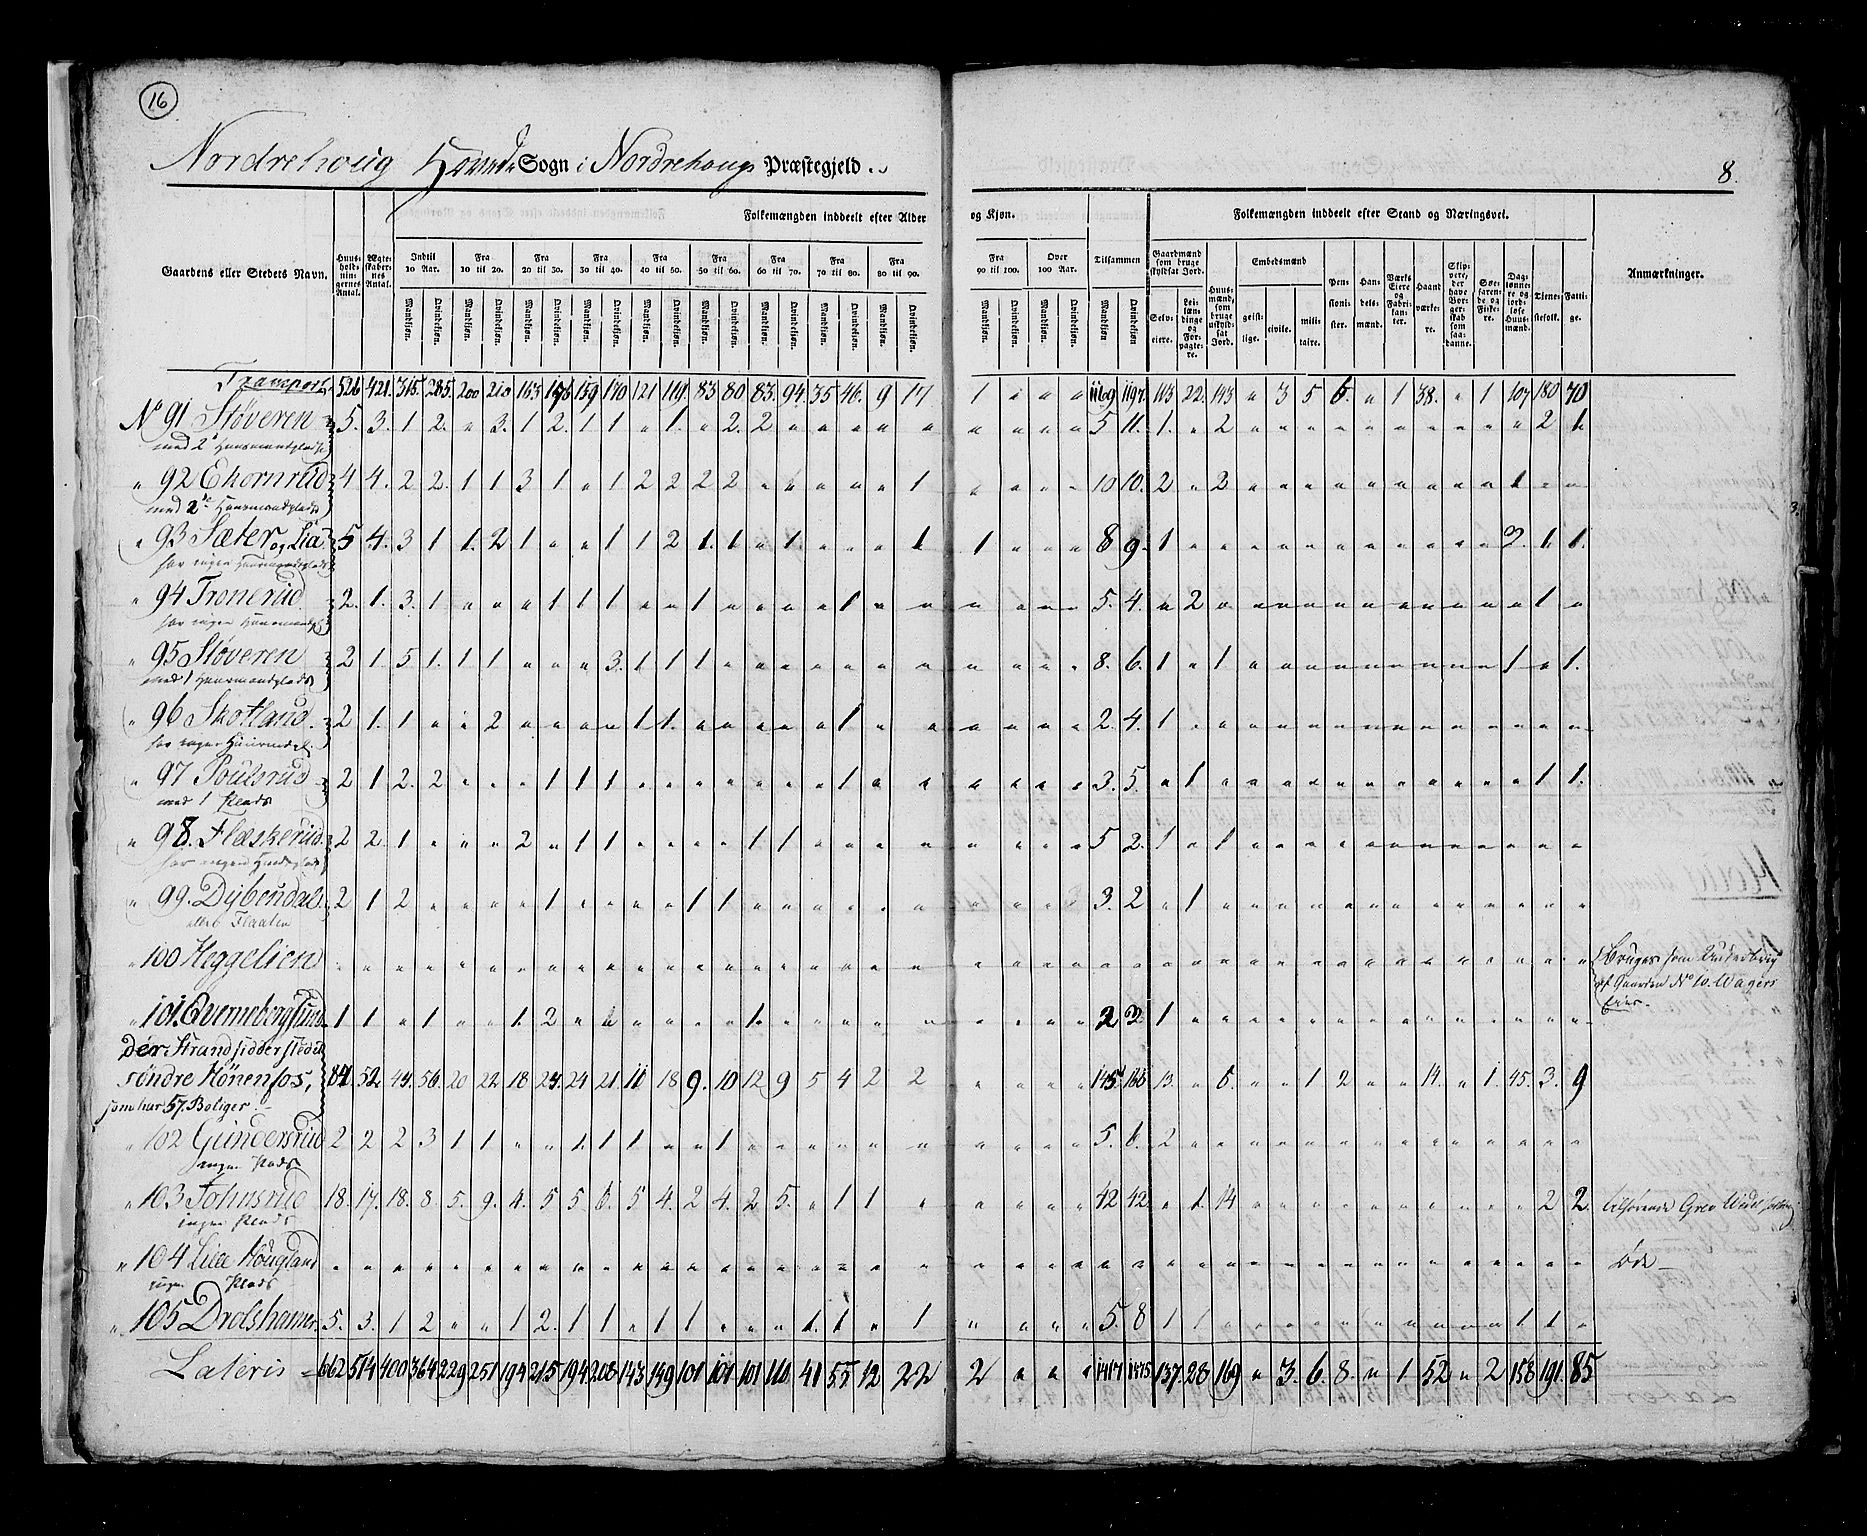 16
Nordrehoug Hoved Sogn i Nordrehougs Præstegjeld.
8.
Gaardens eller Stedets Navn.
Huusholdningernes Antal.
Ægteskabernes Antal.
Folkemængden inddeelt efter Alder og Kjøn.
Folkemængden inddeelt efter Stand og Næringsvei.
Anmærkninger.
Indtil 10 Aar.
Fra 10 til 20.
Fra 20 til 30.
Fra 30 til 40.
Fra 40 til 50.
Fra 50 til 60.
Fra 60 til 70.
Fra 70 til 80.
Fra 80 til 90.
Fra 90 til 100.
Over 100 Aar.
Tilsammen
Mandkiøn. Qvindekiøn.
Gaardmænd som bruge skyldsat Jord.
Selveiere.
Leilændinge og Forpagtere.
Huusmænd, som bruge uskyldsat Jord.
Embedsmænd
geistlige.
civile.
militaire.
Pensionister.
Handelsmænd.
Værks Eiere og Fabrikanter.
Haandværkere.
Skippere, der have Borgerskab som saadanne.
Søefarende og Fiskere.
Daglønnere og jordløse Huusmænd.
Tienestefolk.
Fattige.
Transport 526 421 315. 285. 200 210 163 176 159 170 121 119 83 80 83. 94. 35 46. 9 17 1 " " " 1169 1197. 113 22. 143 " 3 5 6. " 1 38. " 1 107 180 70
No 91 Støveren 5. 3. 1 2. " 3. 1 2. 1 1 " 1. " 2. 2 " " " " " " " " " 5 11. 1. " 2 " " " " " " " " " " 2 1
med 2 Huusmandspladse
" 92 Ekornrud 4 4. 2 2. 1 1 3 1 " 1 2 2 2 2 " " " " " 1 " " " " 10 10. 2 " 2 " " " " " " " " " 1 " "
med 2de Huusmandpladse
" 93 Sæter og Lia 5 4. 3 1 1. 2 1 " " 1 1 2 1. 1 " 1 " " " 1 1 " " " 8 9. 1
har ingen Huusmandplads
" 94 Tronerud 2. 1. 3. 1 " " " 1 1 1 " " 1 " " " " 1 " " " " " " 5. 4. " 2 " " " " " " " " " " " 1 "
har ingen Huusmandpl.
" 95 Støveren 2 1. 5 1. 1 1 " " " 3. 1 1 1 " " " " " " " " " " " 8. 6. 1 " 1 " " " " " " " " " 1 " 1.
med 1 Huusmandplads
" 96 Skotland 2 1. 1 " " 2 " " " " 1 1. " " " " " 1 " " " " " " 2. 4. 1
har ingen Huusmdpl.
" 97 Poulsrud 2 1 2. 2 " " " 1 1 1 " " " " " " " 1 " " " " " " 3. 5. " 1 " " " " " " " " " " " 1 1.
med 1 Plads
" 98. Flæskerud 2 2 1 " " " 2 " 1 1 " " " " 1 1 " " " " " " " " 5 2. 1 " 1
har ingen Huusplads
" 99. Dybendal 2 1 2 " " " " 1 " " " " 1 1 " " " " " " " " " " 3. 2 " 1
eller Flaaten
" 100 Heggelien
Bruges som Underbrug
af Gaarden No 10. Wagers
Eier.
" 101. Qverneberg sund
der Strandsidderstedet
søndre Hønenfos,
som har 57. Boliger.
" 102 Gundersrud 2 2 2 3 1 1 " " 1. 1 1 " " 1 " " " " " " " " " " 5. 6. 2
ingen Plads
" 103 Johnsrud 18. 17. 18. 8. 5. 9. 4. 5 5. 6. 5 4. 2 4. 2 5. " 1 1 " " " " " 42 42. " 1. 14 " " " " " " " " " " 2 2
ingen Plads
tilhørende Grev Wedel
" 104 Lille Hougland
ingen Plads
øde
" 105 Drolshamer. 5. 3. 1 2 " " 1 2. 1 1 " 1 1 " " " 1. 1. " 1 " " " " 5. 8 1 1 " " " " " " " " " " 1 1 "
Lateris 662 514 400 364 229 251 194 215 194 208 143 149 101 101 101 110 41 55 12 22 2 " " " 1417 1475 137. 28 169 " 3. 6 8. " 1 52 " 2 158 191. 85